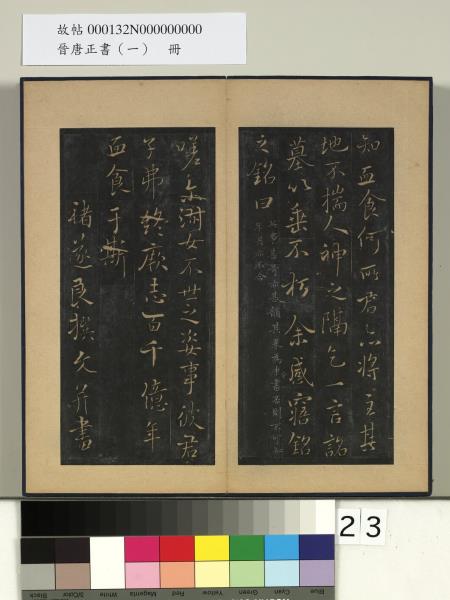 故帖 000132N000000000
晉唐正書（一） 冊
知血食何所君亦將主其
地不揣人神之隔乞一言銘
墓以垂不朽余感寤銘
之銘曰
年月亦不合
嗟爾淑女不世之姿事彼君
子弗終厥志百千億年
血食于斯
褚遂良撰文并書
23
Blue
Cyan
Green
Yellow
Red
Magenta
White
3/Color
Black